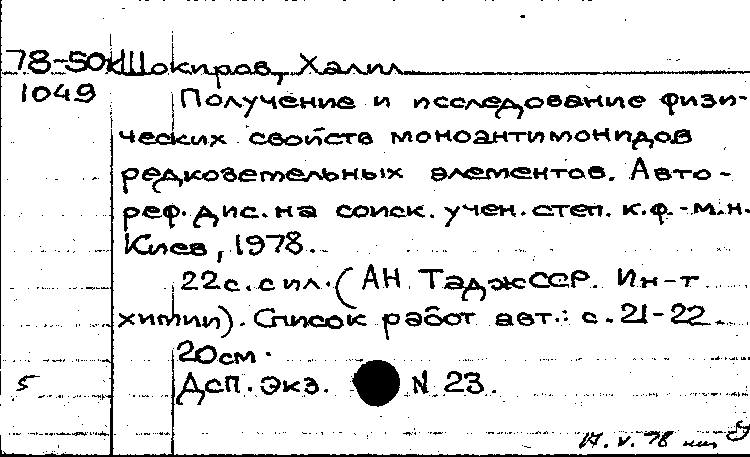 78-50к Шокиров, Халил
1049 Получение и исследование физи-
ческих свойств моноантимонидов
редкоземельных элементов. Авто-
реф. дис. на соиск. учен. степ. к.ф.-м.н.
Киев, 1978.
22с. с ил. (АН ТаджССР. Ин-т
химии). Список работ авт.: с. 21-22.
20см.
5 Дсп. Экз. N 23.
17. V. 78